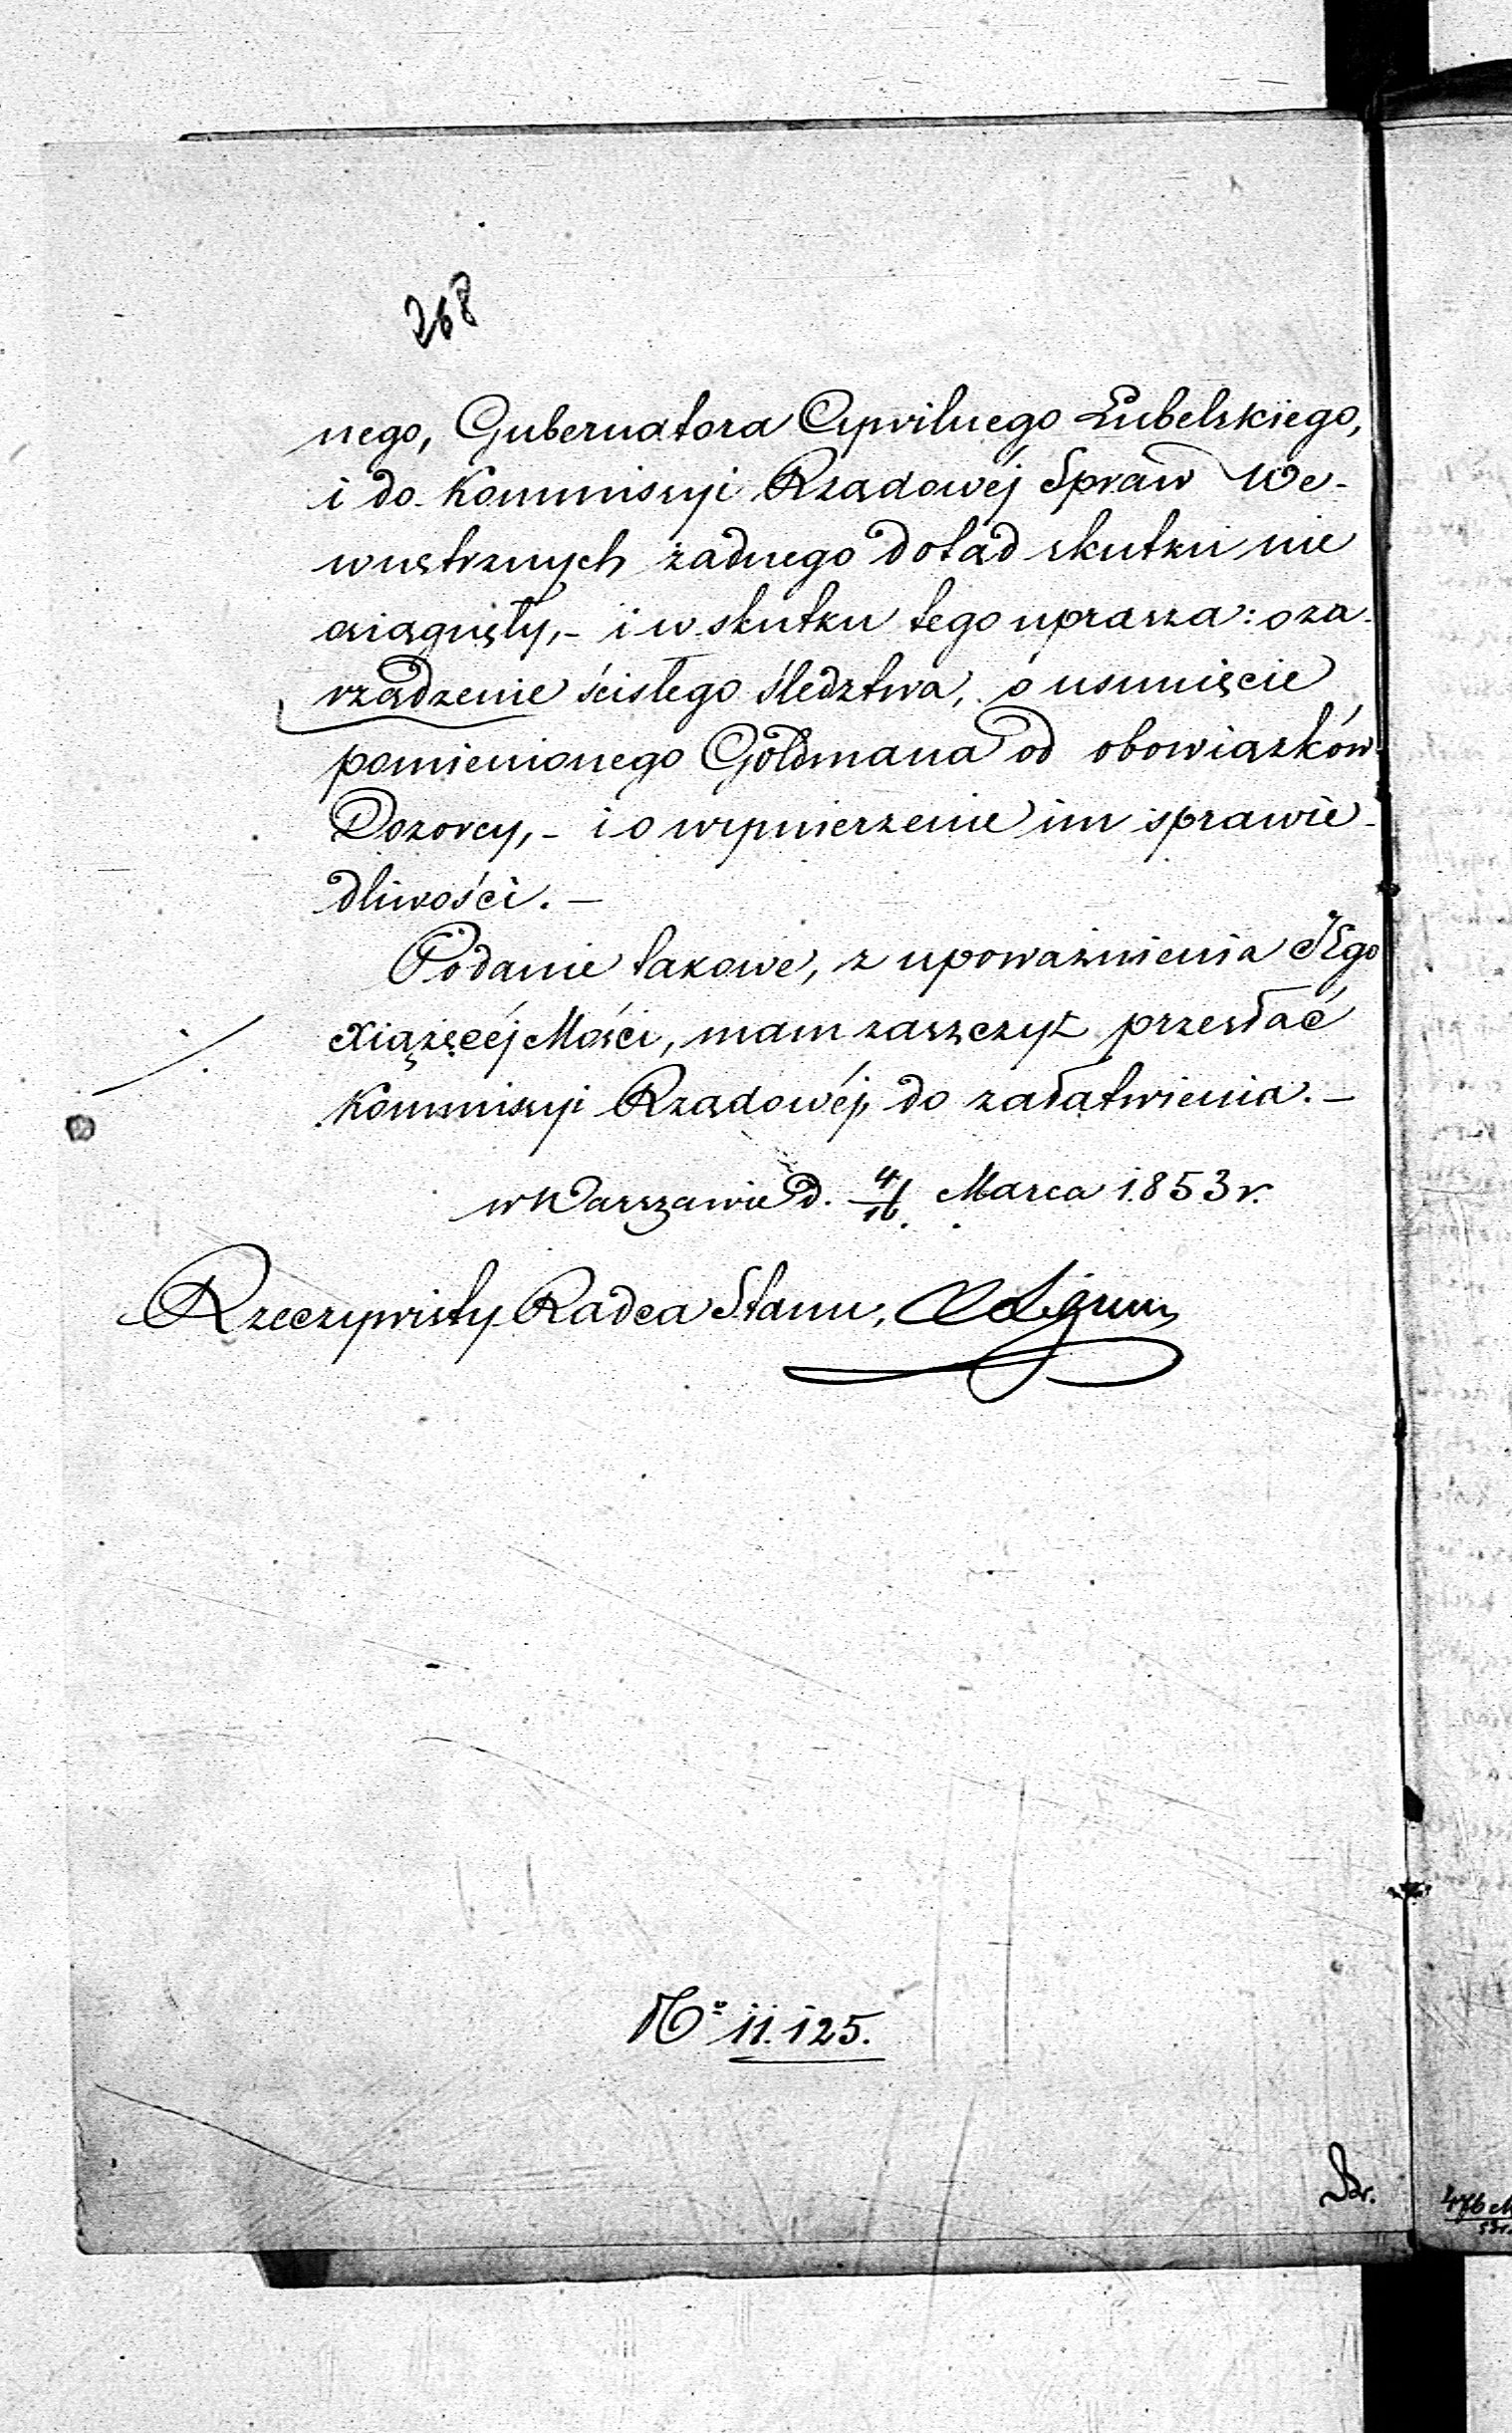 268
nego, Gubernatora Cywilnego Lubelskiego,
i do Kommissyi Rządowéj Spraw We-
wnętrznych żadnego dotąd skutku nie
osiągnęły,- i w skutku tego uprasza: o za-
rządzenie ścisłego śledztwa, o usunięcie
pomienionego Goldmana od obowiązków
Dozorcy,- i o wymierzenie im sprawie-
dliwości.-
Podanie takowe, z upoważnienia JEgo
Xiążęcéj Mości, mam zaszczyt przesłać
Kommissyi Rządowéj, do załatwienia.-
w Warszawie d. 4/16 Marca 1853 r.
Rzeczywisty Radca Stanu,
No 11.125.